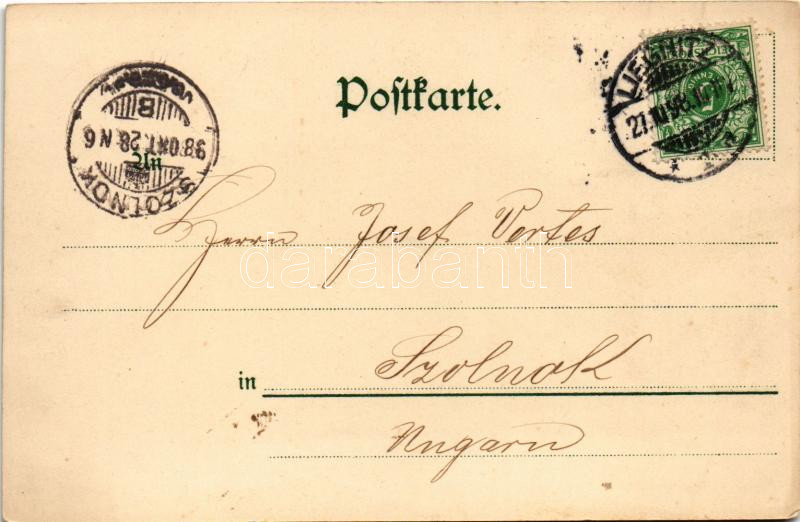 Postkarte.
LIEGNITZ
SZOLNOK
98 OKT. 28 N 6
B
An
Herrn Josef Vertes
darabanth
in Szolnok
Ungarn